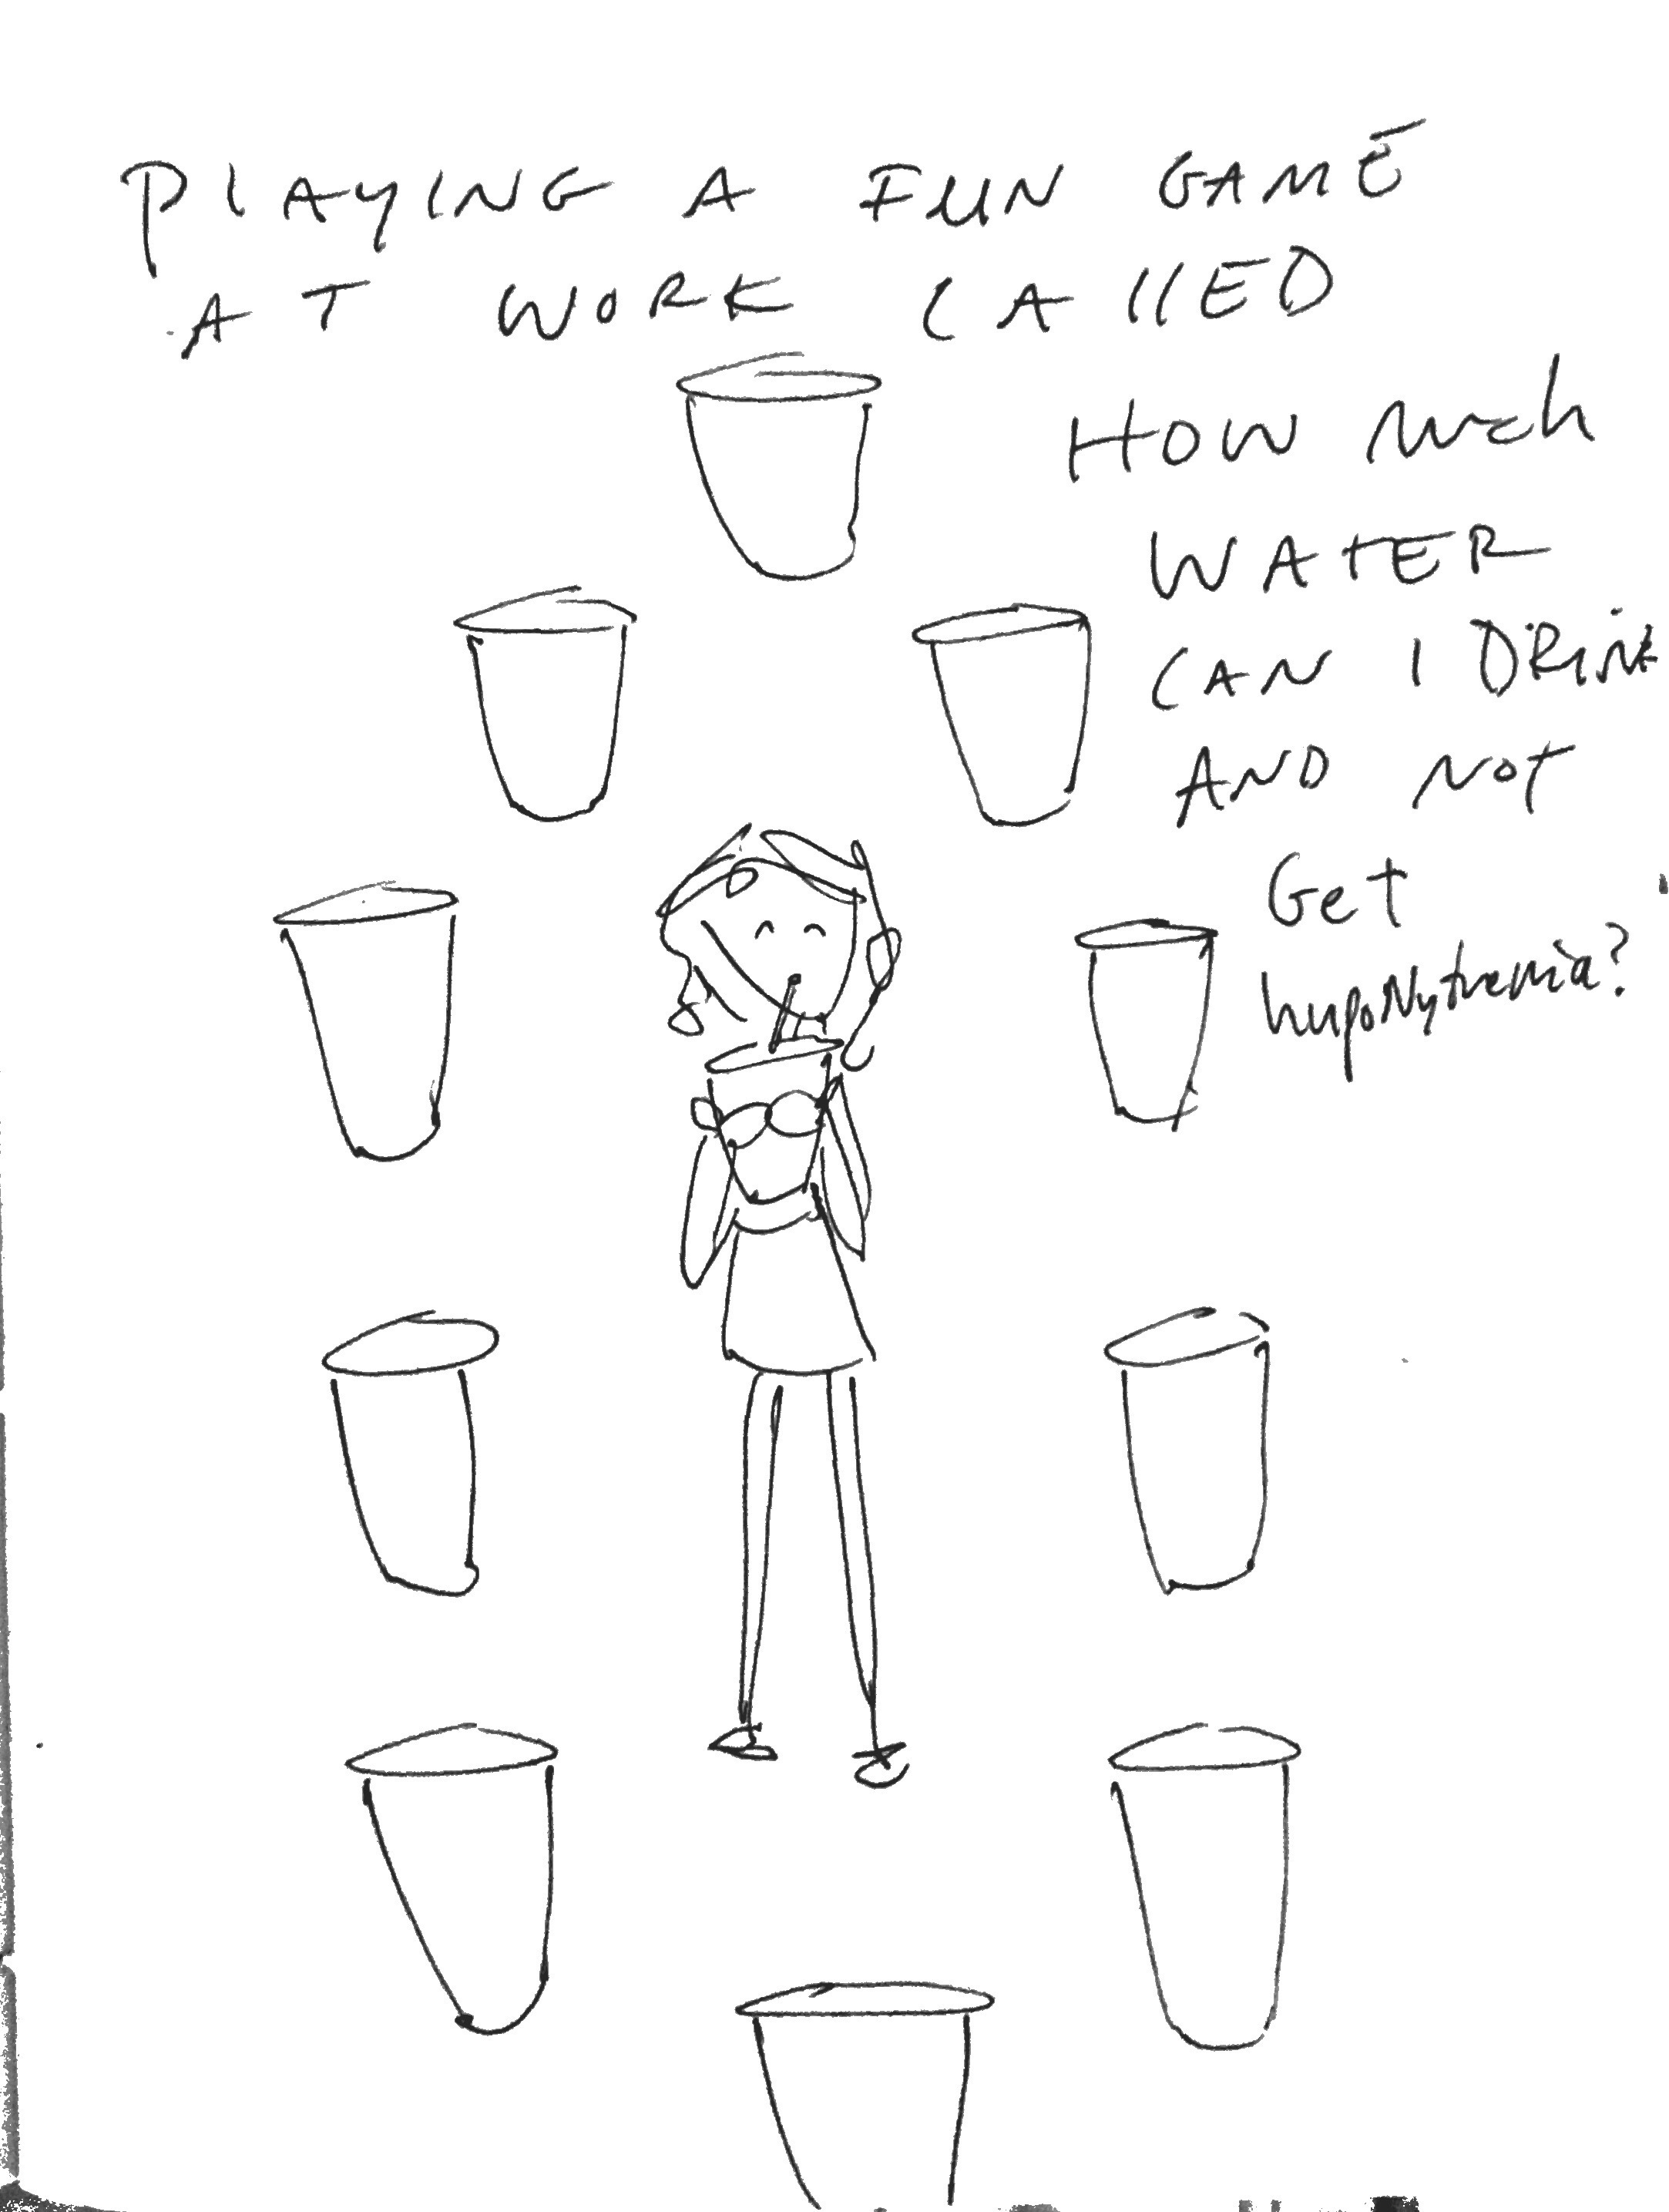 PLAYING A FUN GAME
AT WORK CAllED
HOW Much
WATER
CAN I DRINK
AND NOT
Get
hypoNytremia?